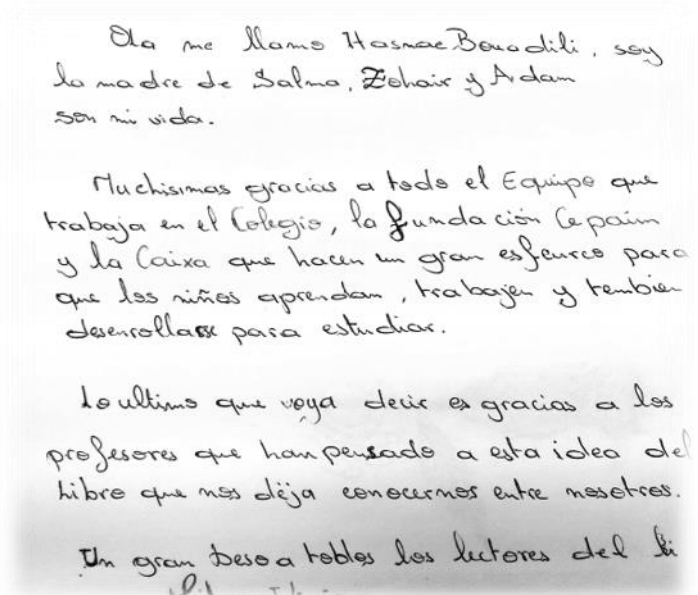 Ola me llamo Hasnae Bouadili, soy
la madre de Salma, Zohair y Adam
son mi vida.
Muchisimas gracias a todo el Equipo que
trabaja en el Colegio, la fundación Cepaim
y la Caixa que hacen un gran esfeurco para
que los niños aprendan, trabajen y tembien
desenrollarse para estudiar.
Lo ultimo que voya decir es gracias a los
profesores que han pensado a esta idea del
Libro que nos déja conocernos entre nosotros.
Un gran beso a tobles los lectores del li